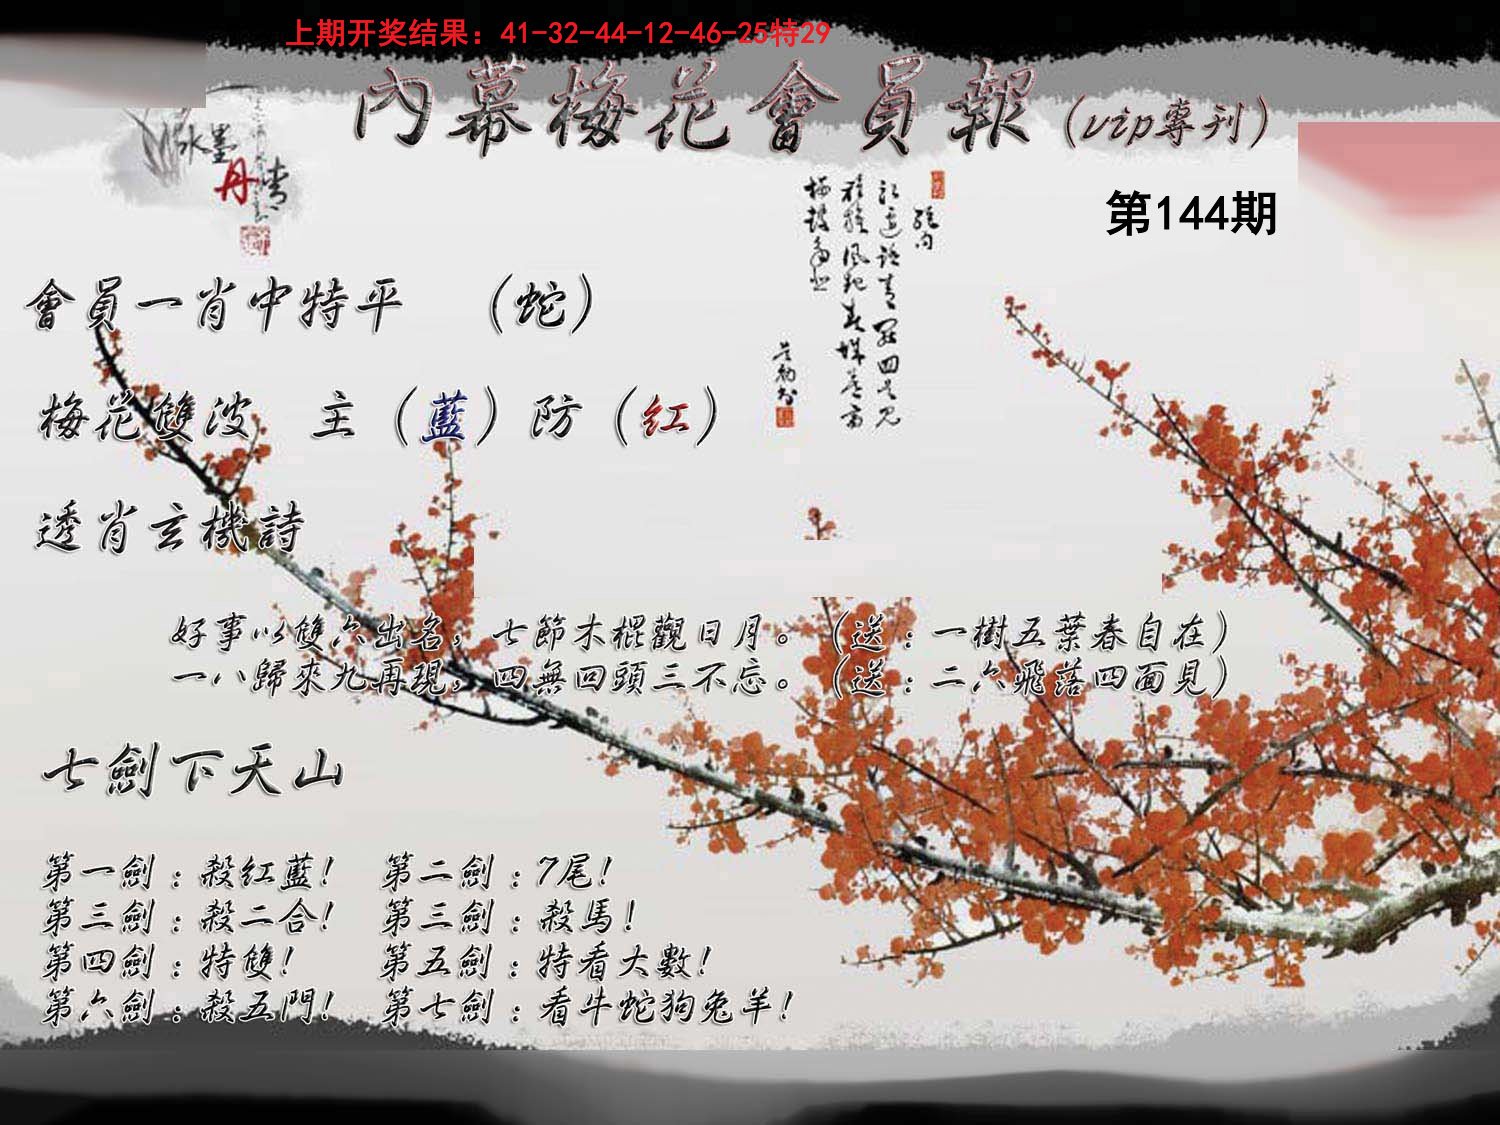 上期开奖结果：41-32-44-12-46-25特29
內幕梅花會員報（vip專刊）
水墨
丹青
第144期
會員一肖中特平　（蛇）
梅花雙波　主（藍）防（紅）
透肖玄機詩
好事以雙六出名，七節木棍觀日月。（送：一樹五葉春自在）
一八歸來九再現，四無回頭三不忘。（送：二六飛落四面見）
七劍下天山
第一劍：殺紅藍！　第二劍：7尾！
第三劍：殺二合！　第三劍：殺馬！
第四劍：特雙！　第五劍：特看大數！
第六劍：殺五門！　第七劍：看牛蛇狗兔羊！